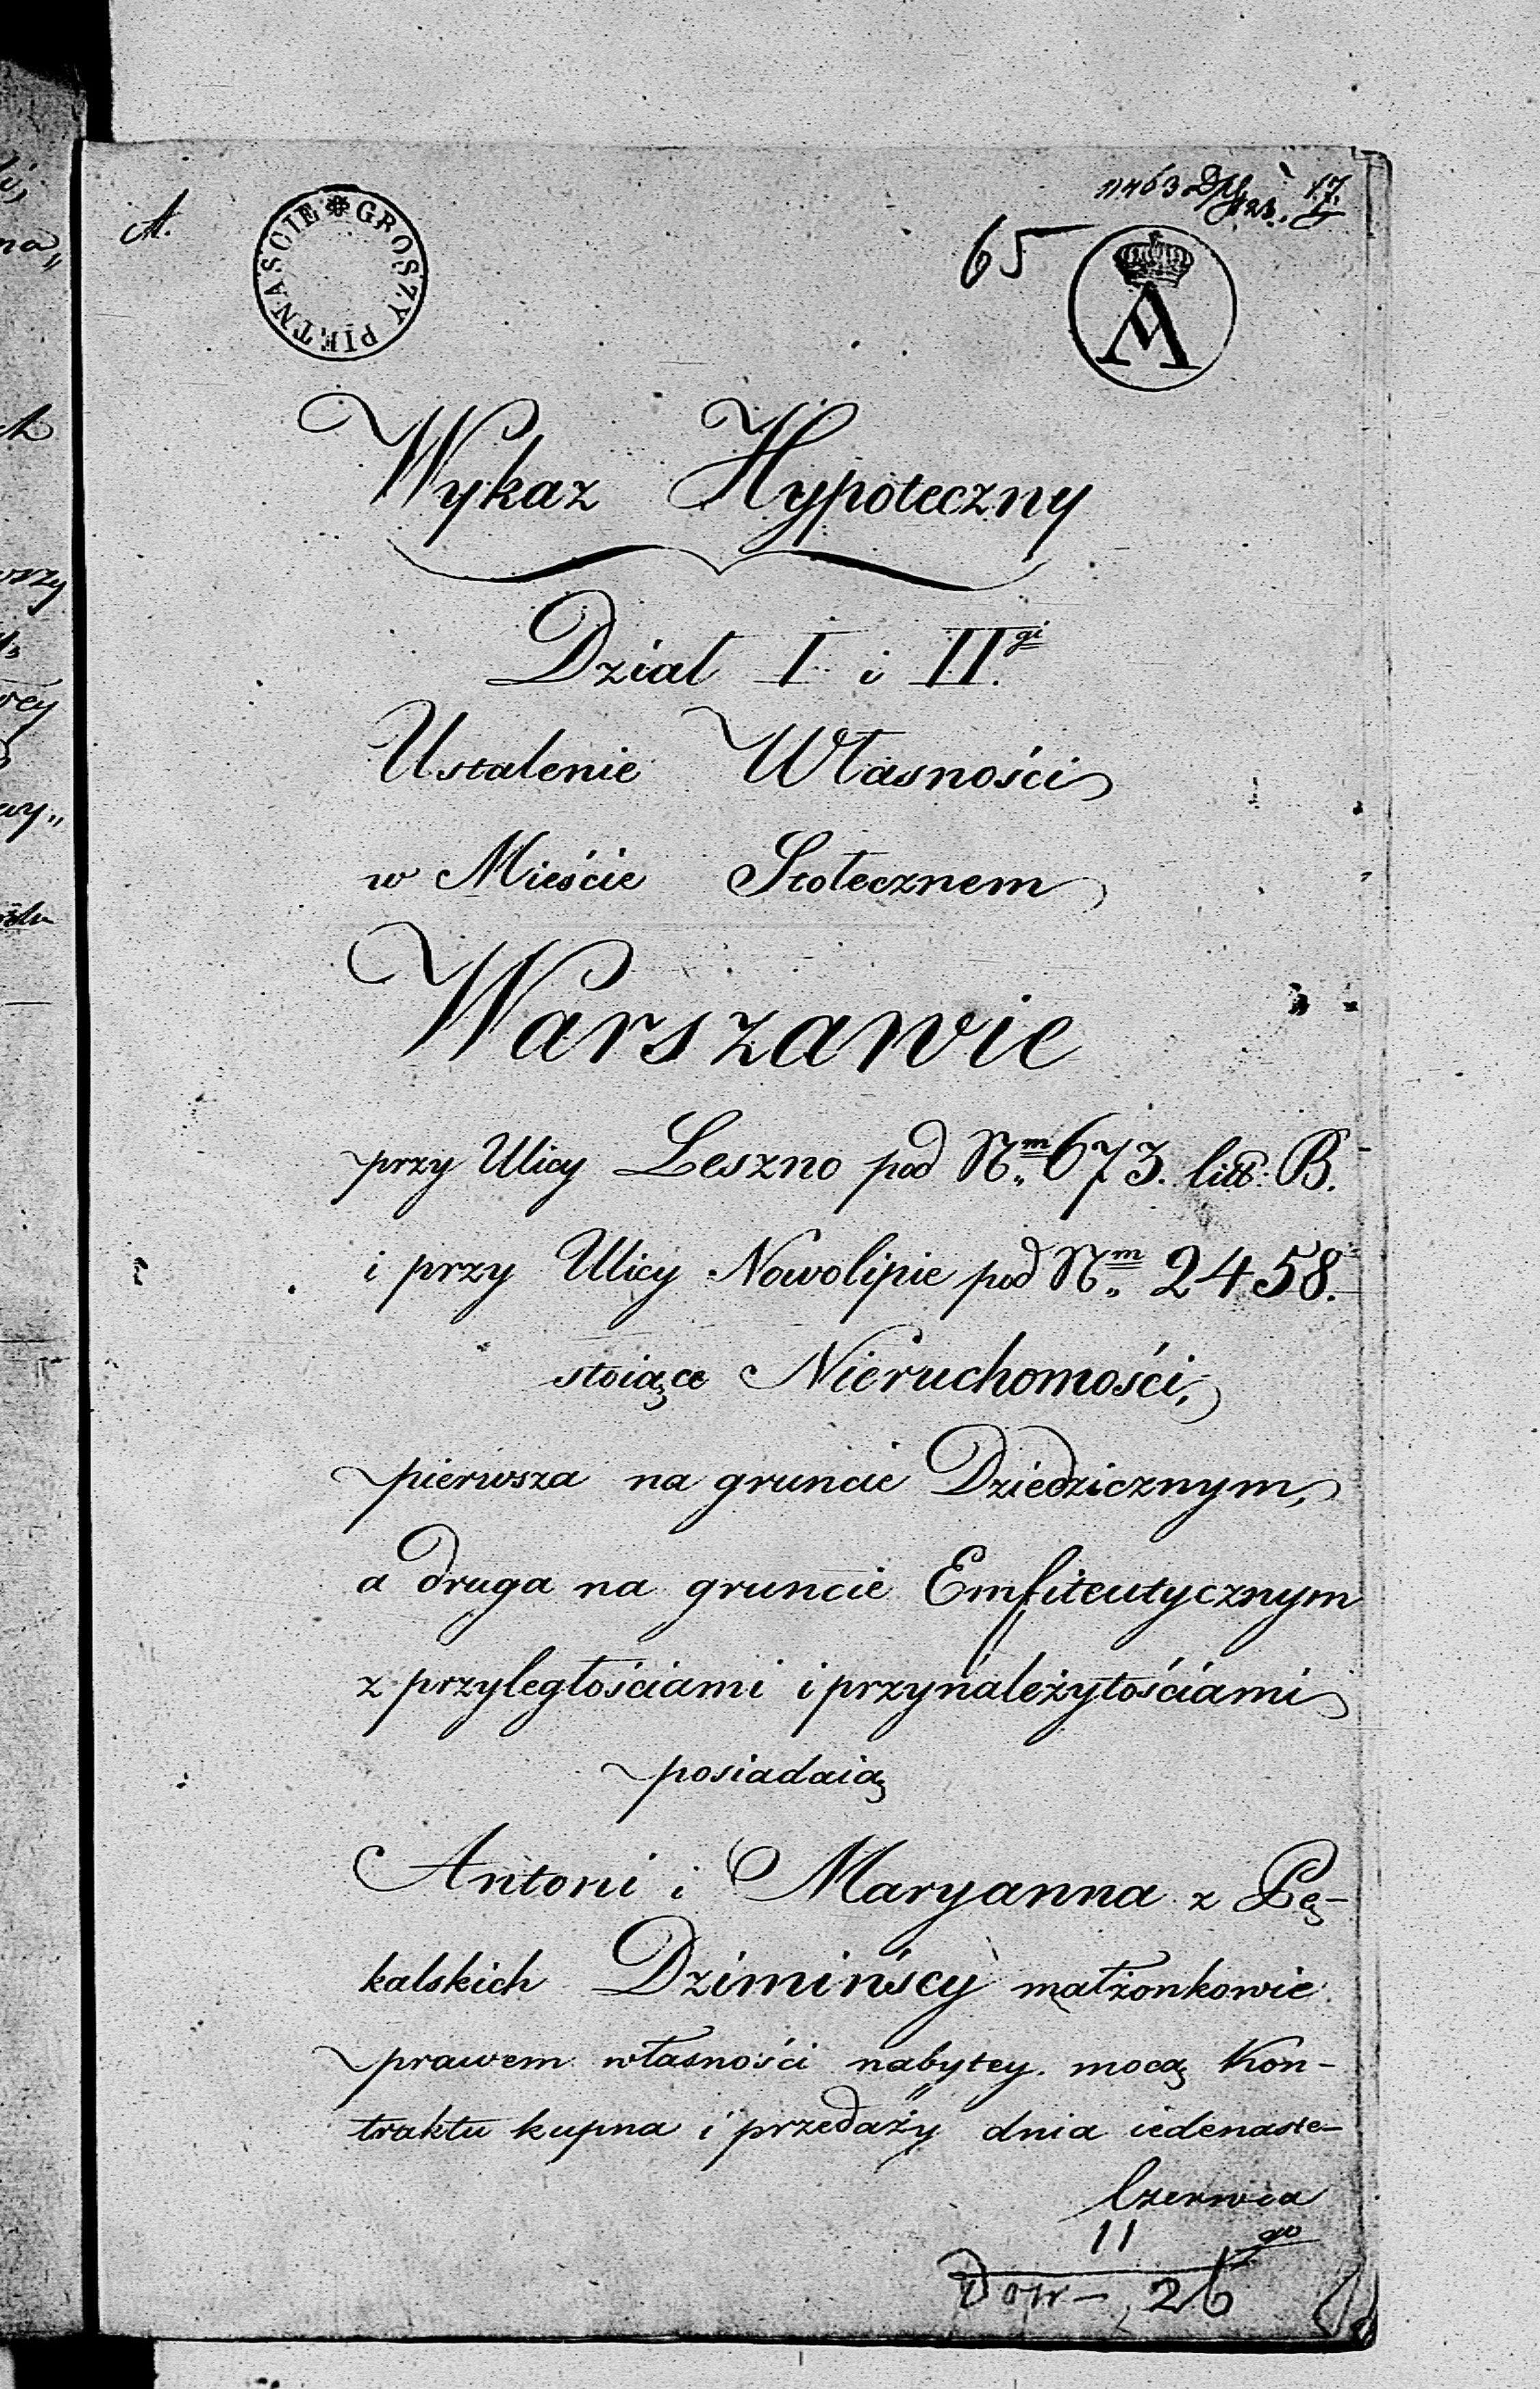 A.
GROSZY PIETNAŚCIE
65
A
Wykaz Hypoteczny
Dział I i II.gi
Ustalenie Własności
w Mieście Stołecznem
Warszawie
przy Ulicy Leszno pod Nm 673. litt: B.
i przy Ulicy Nowolipie pod Nm 2458.
stoiące Nieruchomości,
pierwsza na gruncie Dziedzicznym,
a druga na gruncie Emfiteutycznym
z przyległościami i przynależytościami
posiadaią
Antoni i Maryanna z Pę-
kalskich Dzimińscy małżonkowie
prawem własności nabytey mocą Kon-
traktu kupna i przedaży dnia iedenaste-
go
Czerwca
11
26